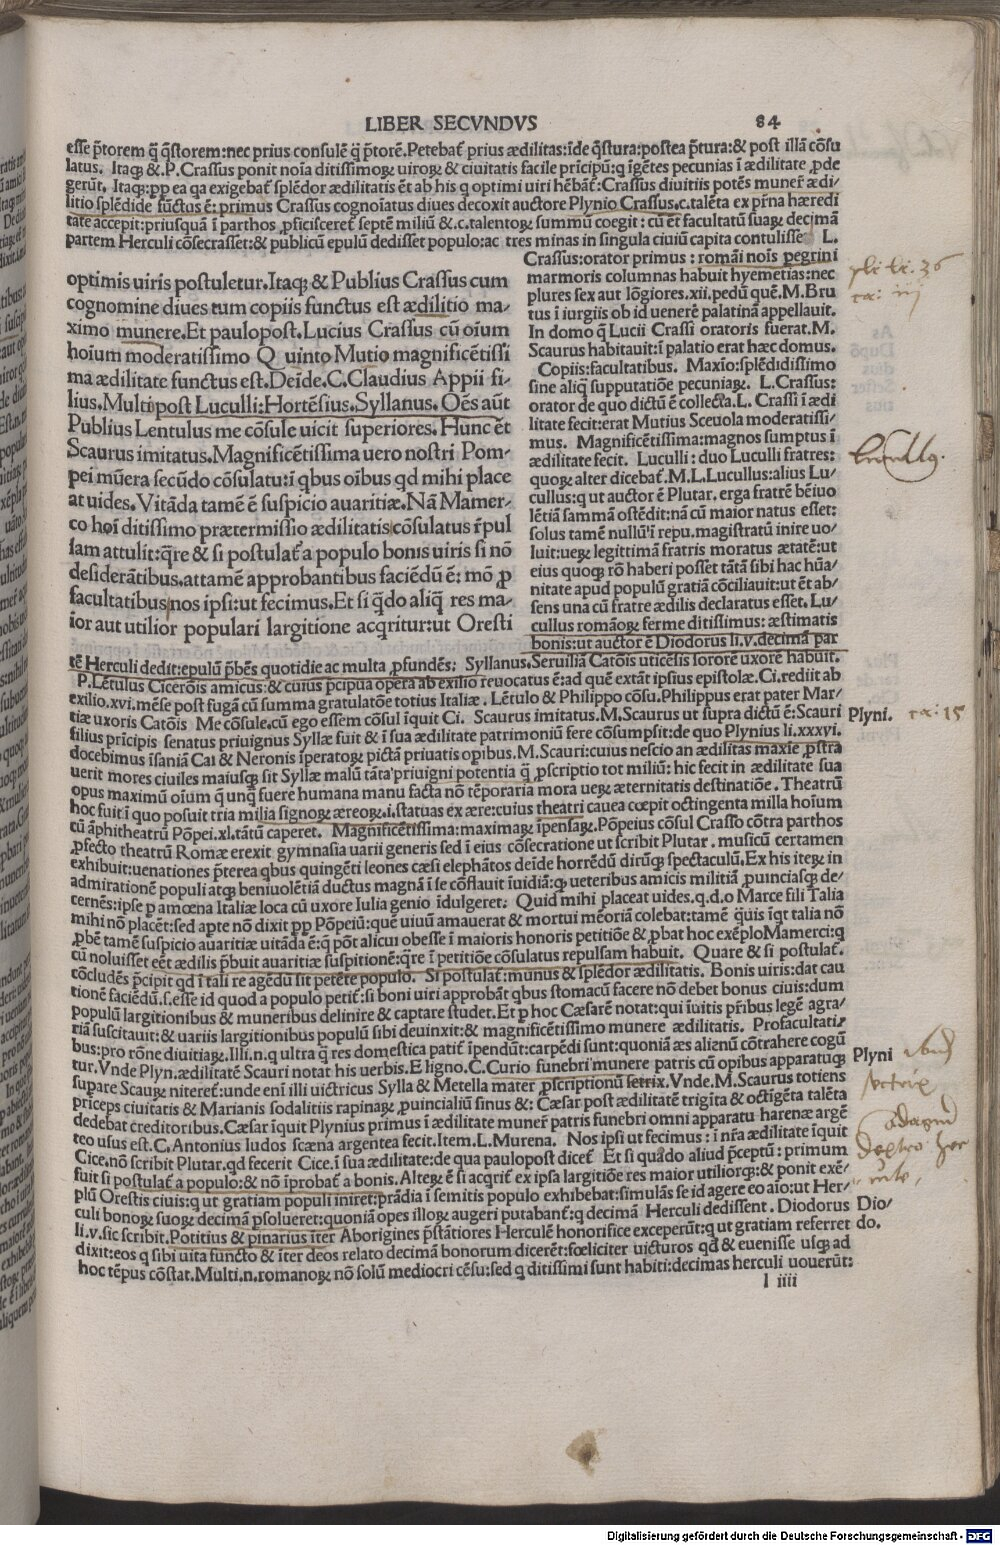 LIBER SECVNDVS 84
esse p̄torem q̄ q̄storem:nec prius consulē q̄ p̄torē.Petebat᷑ prius ædilitas:īde q̄stura:postea p̄tura:& post illā cōsu
latus. Itaqꝫ & .P.Crassus ponit noīa ditissimoꝝ uiroꝝ & ciuitatis facile prīcipū:q īgētes pecunias ī ædilitate ꝓde
gerūt. Itaqꝫ:pp ea qa exigebat᷑ splēdor ædilitatis ēt ab his q optimi uiri hēbāt᷑:Crassus diuitiis potēs muner᷑ ædi⸗
litio splēdide fūctus ē: primus Crassus cognoīatus diues decoxit auctore Plynio Crassus.c.talēta ex pr̄na hæredi
tate accepit:priusquā ī parthos ꝓficisceret᷑ septē miliū & .c.talentoꝝ summū coegit : cū ēt facultatū suaꝝ decimā
partem Herculi cōsecrasset:& publicū epulū dedisset populo:ac tres minas in singula ciuiū capita contulisse L.
optimis uiris postuletur.Itaqꝫ & Publius Crassus cum
cognomine diues tum copiis functus est ædilitio ma⸗
ximo munere.Et paulopost.Lucius Crassus cū oīum
hoīum moderatissimo Q uinto Mutio magnificētissi
ma ædilitate functus est.Deīde.C.Claudius Appii fi⸗
lius.Multi post Luculli:Hortēsius.Syllanus.Oēs aūt
Publius Lentulus me cōsule uicit superiores.Hunc ēt
Scaurus imitatus.Magnificētissima uero nostri Pom⸗
pei mūera secūdo cōsulatu:ī qbus oībus qd mihi place
at uides.Vitāda tamē ē suspicio auaritiæ.Nā Mamer⸗
co hoī ditissimo prætermissio ædilitatis cōsulatus r̄pul
sam attulit:q̄re & si postulat᷑ a populo bonis uiris si nō
desiderātibus.attamē approbantibus faciēdū ē: mō ꝓ
facultatibus nos ipsi:ut fecimus.Et si q̄do aliq̄ res ma⸗
ior aut utilior populari largitione acqritur:ut Oresti
Crassus:orator primus : romāi nois pegrini
marmoris columnas habuit hyemetias:nec
plures sex aut lōgiores.xii.pedū quē.M.Bru
tus ī iurgiis ob id uenerē palatinā appellauit.
In domo q̄ Lucii Crassi oratoris fuerat.M.
Scaurus habitauit:ī palatio erat hæc domus.
Copiis:facultatibus. Maxio:splēdidissimo
sine aliq̄ supputatiōe pecuniaꝝ. L.Crassus:
orator de quo dictū ē collecta.L. Crassi ī ædi
litate fecit:erat Mutius Sceuola moderatissi⸗
mus. Magnificētissima:magnos sumptus ī
ædilitate fecit. Luculli : duo Luculli fratres:
quoꝝ alter dicebat᷑.M.L.Lucullus:alius Lu⸗
cullus:q ut auctor ē Plutar. erga fratrē bēiuo
lētiā sammā ostēdit:nā cū maior natus esset:
solus tamē nullū ī repu.magistratū inire uo⸗
luit:ueꝝ legittimā fratris moratus ætatē:ut
eius quoqꝫ rō haberi posset tātā sibi hac hūa⸗
nitate apud populū gratiā cōciliauit:ut ēt ab⸗
sens una cū fratre ædilis declaratus esset. Lu⸗
cullus romāoꝝ ferme ditissimus: æstimatis
bonis:ut auctor ē Diodorus li.v.decimā par
tē Herculi dedit:epulū p̄bēs quotidie ac multa ꝓfundēs: Syllanus.Seruiliā Catōis uticēsis sororē uxorē habuit.
P.Lētulus Cicerōis amicus:& cuius p̄cipua opera ab exilio reuocatus ē:ad quē extāt ipsius epistolæ.Ci.rediit ab
exilio.xvi.mēse post fugā cū summa gratulatōe totius Italiæ. Lētulo & Philippo cōsu.Philippus erat pater Mar⸗
tiæ uxoris Catōis Me cōsule.cū ego essem cōsul īquit Ci. Scaurus imitatus.M.Scaurus ut supra dictū ē:Scauri
filius prīcipis senatus priuignus Syllæ fuit & ī sua ædilitate patrimoniū fere cōsumpsit:de quo Plynius li.xxxvi.
docebimus īsaniā Cai & Neronis īperatoꝝ pictā priuatis opibus.M.Scauri:cuius nescio an ædilitas maxīe ꝓstra
uerit mores ciuiles maiusqꝫ sit Syllæ malū tāta priuigni potentia q̄ ꝓscriptio tot miliū: hic fecit in ædilitate sua
opus maximū oīum q̄ unq̄ fuere humana manu facta nō tēporaria mora ueꝝ æternitatis destinatiōe . Theatrū
hoc fuit ī quo posuit tria milia signoꝝ æreoꝝ.i.statuas ex ære:cuius theatri cauea cœpit octingenta milla hoīum
cū āphitheatrū Pōpei.xl.tātū caperet. Magnificētissima:maximaꝝ īpensaꝝ.Pōpeius cōsul Crasso cōtra parthos
ꝓfecto theatrū Romæ erexit gymnasia uarii generis sed ī eius cōsecratione ut scribit Plutar . musicū certamen
exhibuit:uenationes p̄terea qbus quingēti leones cæsi elephātos deīde horrēdū dirūqꝫ spectaculū.Ex his iteꝝ in
admirationē populi atqꝫ beniuolētiā ductus magnā ī se cōflauit īuidiā:qꝫ ueteribus amicis militiā ꝓuinciasqꝫ de⸗
cernēs:ipse p amœna Italiæ loca cū uxore Iulia genio īdulgeret: Quid mihi placeat uides.q.d.o Marce fili Talia
mihi nō placēt:sed apte nō dixit pp Pōpeiū:quē uiuū amauerat & mortui mēoriā colebat:tamē quis iqt talia nō
ꝓbē tamē suspicio auaritiæ uitāda ē:q̄ pōt alicui obesse ī maioris honoris petitiōe & ꝓbat hoc exēplo Mamerci:q
cū noluisset eēt ædilis p̄buit auaritiæ suspitionē:q̄re ī petitiōe cōsulatus repulsam habuit. Quare & si postulat᷑.
cōcludēs p̄cipit qd ī tali re agēdū sit petēte populo. Si postulat᷑:munus & splēdor ædilitatis. Bonis uiris:dat cau
tionē faciēdū.s.esse id quod a populo petit᷑:si boni uiri approbāt qbus stomacū facere nō debet bonus ciuis:dum
populū largitionibus & muneribus delinire & captare studet.Et p hoc Cæsarē notat:qui īuitis pr̄ibus legē agra⸗
riā suscitauit:& uariis largitionibus populū sibi deuinxit:& magnificētissimo munere ædilitatis. Profacultati⸗
bus:pro rōne diuitiaꝝ.Illi.n.q ultra q̄ res domestica patit᷑ īpendūt:carpēdi sunt:quoniā æs alienū cōtrahere cogū
tur.Vnde Plyn.ædilitatē Scauri notat his uerbis.E ligno.C.Curio funebri munere patris cū opibus apparatuqꝫ
supare Scauꝝ niteret᷑:unde enī illi uictricus Sylla & Metella mater ꝓscriptionū setrix.Vnde.M.Scaurus totiens
prīceps ciuitatis & Marianis sodalitiis rapinaꝝ ꝓuincialiū sinus &: Cæsar post ædilitatē trigīta & octīgēta talēta
dedebat creditoribus.Cæsar īquit Plynius primus ī ædilitate muner᷑ patris funebri omni apparatu harenæ argē
teo usus est.C.Antonius ludos scæna argentea fecit.Item.L.Murena. Nos ipsi ut fecimus : ī nr̄a ædilitate īquit
Cice.nō scribit Plutar.qd fecerit Cice.ī sua ædilitate:de qua paulopost dicet᷑ Et si quādo aliud p̄ceptū : primum
fuit si postulat᷑ a populo:& nō īprobat᷑ a bonis.Alteꝝ ē si acqrit᷑ ex ipsa largitiōe res maior utiliorqꝫ:& ponit exē⸗
plū Orestis ciuis:q ut gratiam populi iniret:prādia ī semitis populo exhibebat:simulās se id agere eo aio:ut Her⸗
culi bonoꝝ suoꝝ decimā psolueret:quoniā opes illoꝝ augeri putabant᷑:q decimā Herculi dedissent . Diodorus
li.v.sic scribit.Potitius & pinarius iter Aborigines p̄stātiores Herculē honorifice exceperūt:q ut gratiam referret
dixit:eos q sibi uita functo & iter deos relato decimā bonorum dicerēt:fœliciter uicturos qd & euenisse usqꝫ ad
hoc tēpus cōstat.Multi.n.romanoꝝ nō solū mediocri cēsu:sed q ditissimi sunt habiti:decimas herculi uouerūt:
l iiii
pli li. 36
ca: iij
Lucullꝰ.
Plyni. ca: 15
Plyni
sectrix
Adagiū
Dio⸗
do.
Digitalisierung gefördert durch die Deutsche Forschungsgemeinschaft - DFG